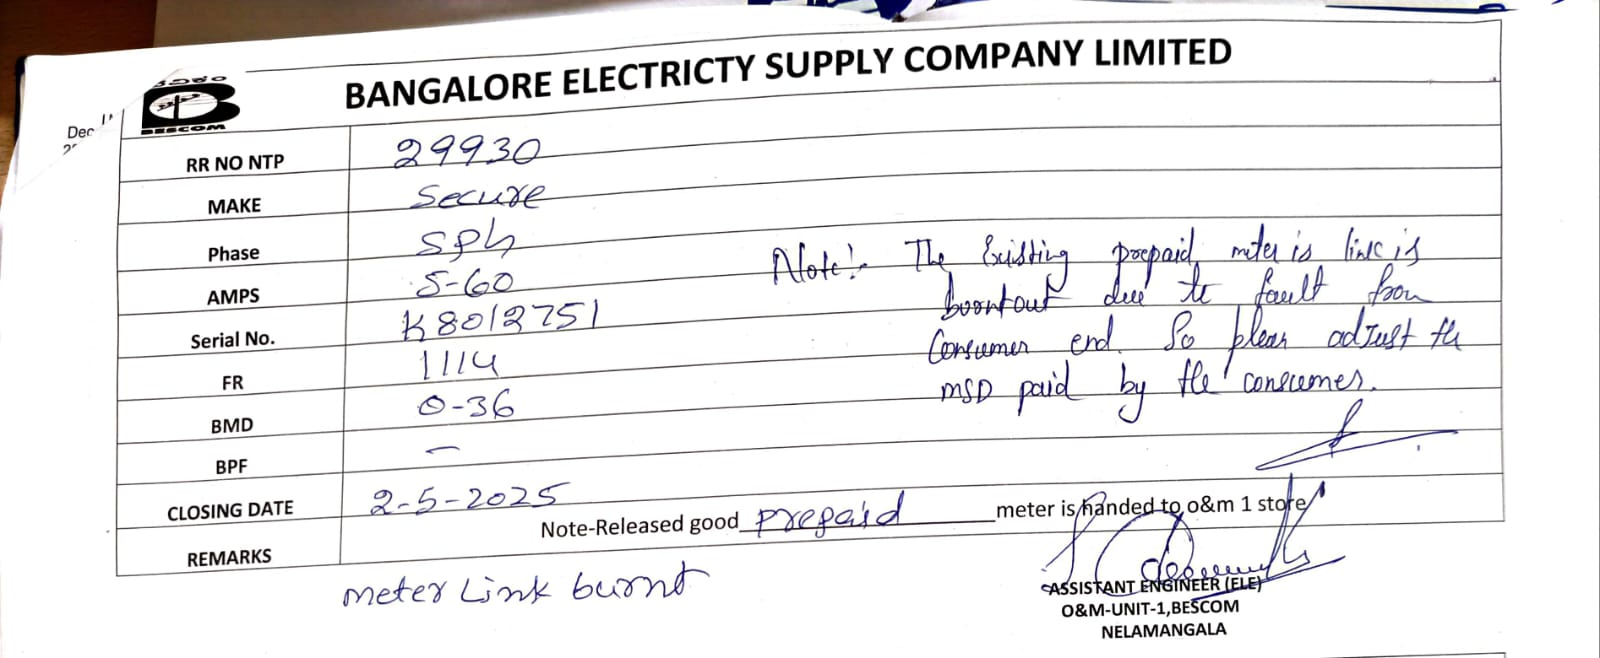 BANGALORE ELECTRICTY SUPPLY COMPANY LIMITED
BESCOM
Dec
RR NO NTP 29930
MAKE Secure
Phase SPh
AMPS 5-60
Serial No. K8012751
FR 1114
BMD 0-36
BPF -
CLOSING DATE 2-5-2025
Note:- The Existing prepaid meter is link is
boorntout due to fault from
Consumer end. So pleas adjust the
MSD paid by the consumer.
REMARKS Note-Released good prepaid meter is handed to o&m 1 store
meter Link burnt
ASSISTANT ENGINEER (ELE)
O&M-UNIT-1,BESCOM
NELAMANGALA